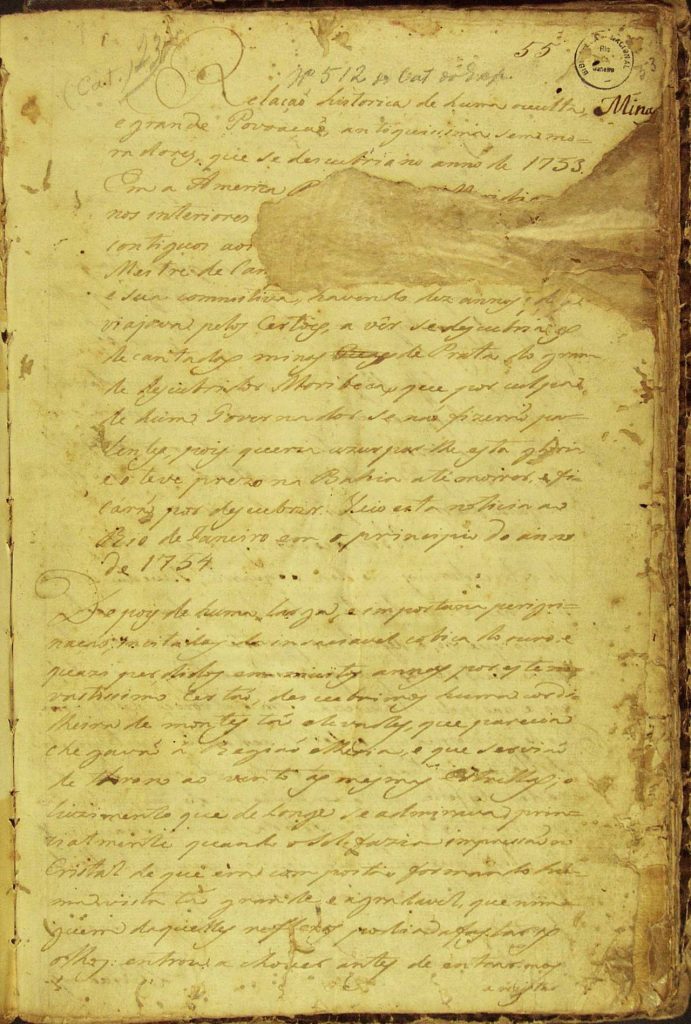 55
BIBLIOTHECA NACIONAL
Rio de Janeiro
53
(Cat.) 23
Nº 512 do Cat. do Exp.
Minas
Relação historica de huma occulta,
e grande Povoação, antiquissima sem mo=
radores, que se descubriu no anno de 1753.
Em a America
nos interiores
contiguos aos
Mestre de Can
e sua comitiva, havendo dez annos, q̃
viajava pelos Certoẽs, a vêr se descubria as
decantadas minas de Prata do gran
de descubridor Moribeca, que por culpa
de hum Governador se naõ fizeraõ pa=
tentes, pois queria uzurparlhe esta gloria
e o teve prezo na Bahia até morrer, e fi
caraõ por descubrir. Veio esta noticia ao
Rio de Janeiro em o principio do anno
de 1754.
Depois de huma larga, e importuna perigri=
naçaõ, incitados da insaciavel cobiça do ouro, e
quazi perdidos em muitos annos por este
vastissimo Certaõ, descubrimos huma cordi=
lheira de montes taõ elevados, que parecia
chegavaõ á Regiaõ etheria, e que serviaõ
de throno ao vento ás mesmas Estrellas; o
luzimento que de longe se admirava, princi
palmente quando o Sol fazia impressaõ no
Cristal de que era composta formando hu=
ma vista taõ grande e agradavel, que nin=
guem daquelles reflexos podia afastar os
olhos: entrou a chover antes de entrarmos
a registar